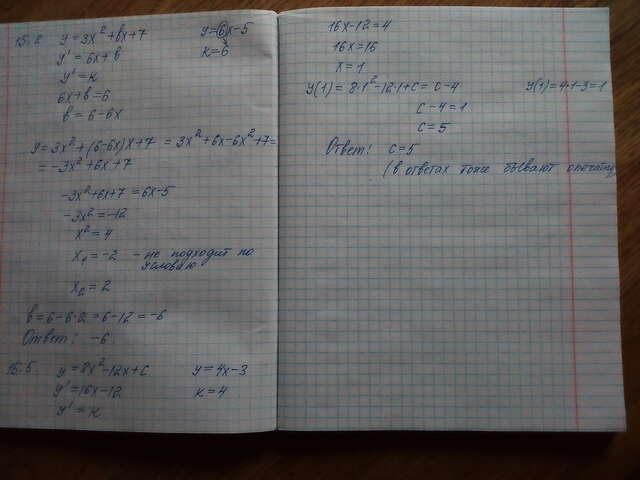 15.2 y=3x²+bx+7 y=6x-5
y'=6x+b k=6
y'=k
6x+b=6
b=6-6x
y=3x²+(6-6x)x+7=3x²+6x-6x²+7=
=-3x²+6x+7
-3x²+6x+7=6x-5
-3x²=-12
x²=4
x₁=-2 - не подходит по
условию
x₂=2
b=6-6·2=6-12=-6
Ответ: -6.
15.5 y=8x²-12x+c y=4x-3
y'=16x-12 k=4
y'=k
16x-12=4
16x=16
x=1
y(1)=8·1²-12·1+c=c-4 y(1)=4·1-3=1
c-4=1
c=5
Ответ: c=5
(в ответах тоже бывают опечатки